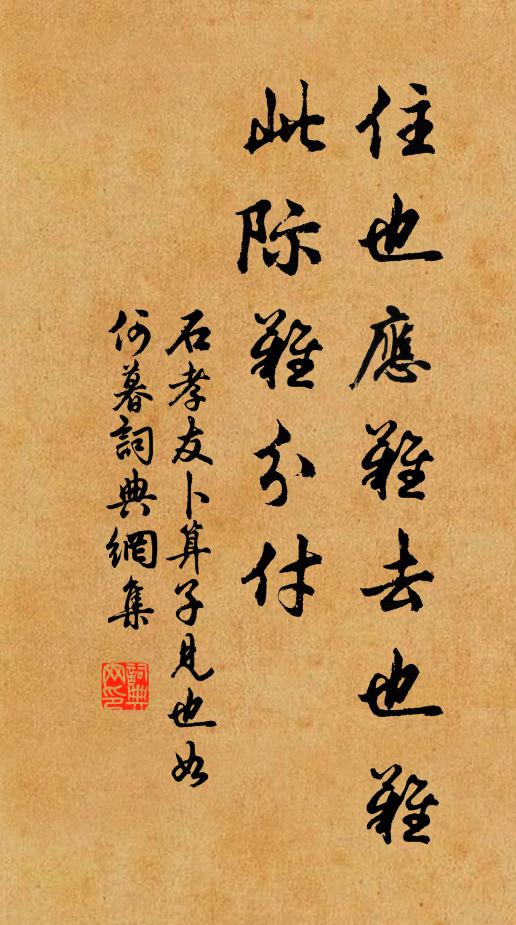 住也應難去也難
此际難分付
石孝友卜算子見也如
何暮詞典網集
詞典网印